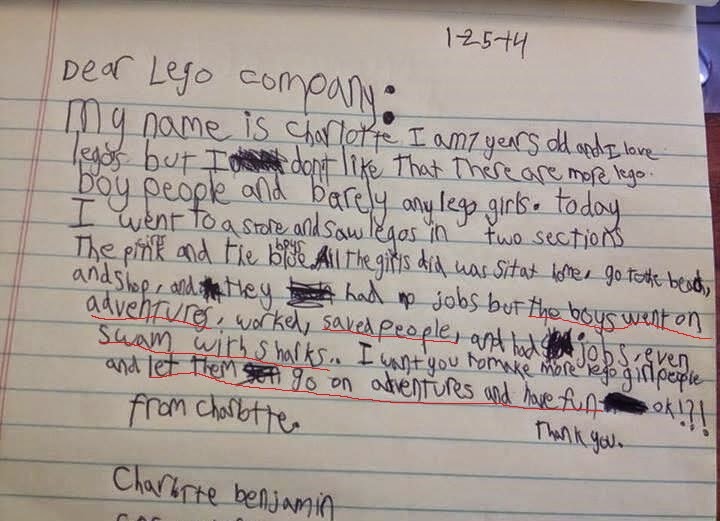 1-25-14
Dear Lego company:
My name is Charlotte I am 7 years old and I love
legos but I don't like that there are more lego.
boy people and barely any lego girls. today
I went to a store and saw legos in two sections
The pink girls and the blue boys. All the girls did was sit at home, go to the beach,
and shop, and they had no jobs but the boys went on
adventures, worked, saved people, and had jobs, even
swam with sharks.. I want you to make more lego girl people
and let them go on adventures and have fun ok!?!
from charlotte. Thank you.
Charlotte benjamin